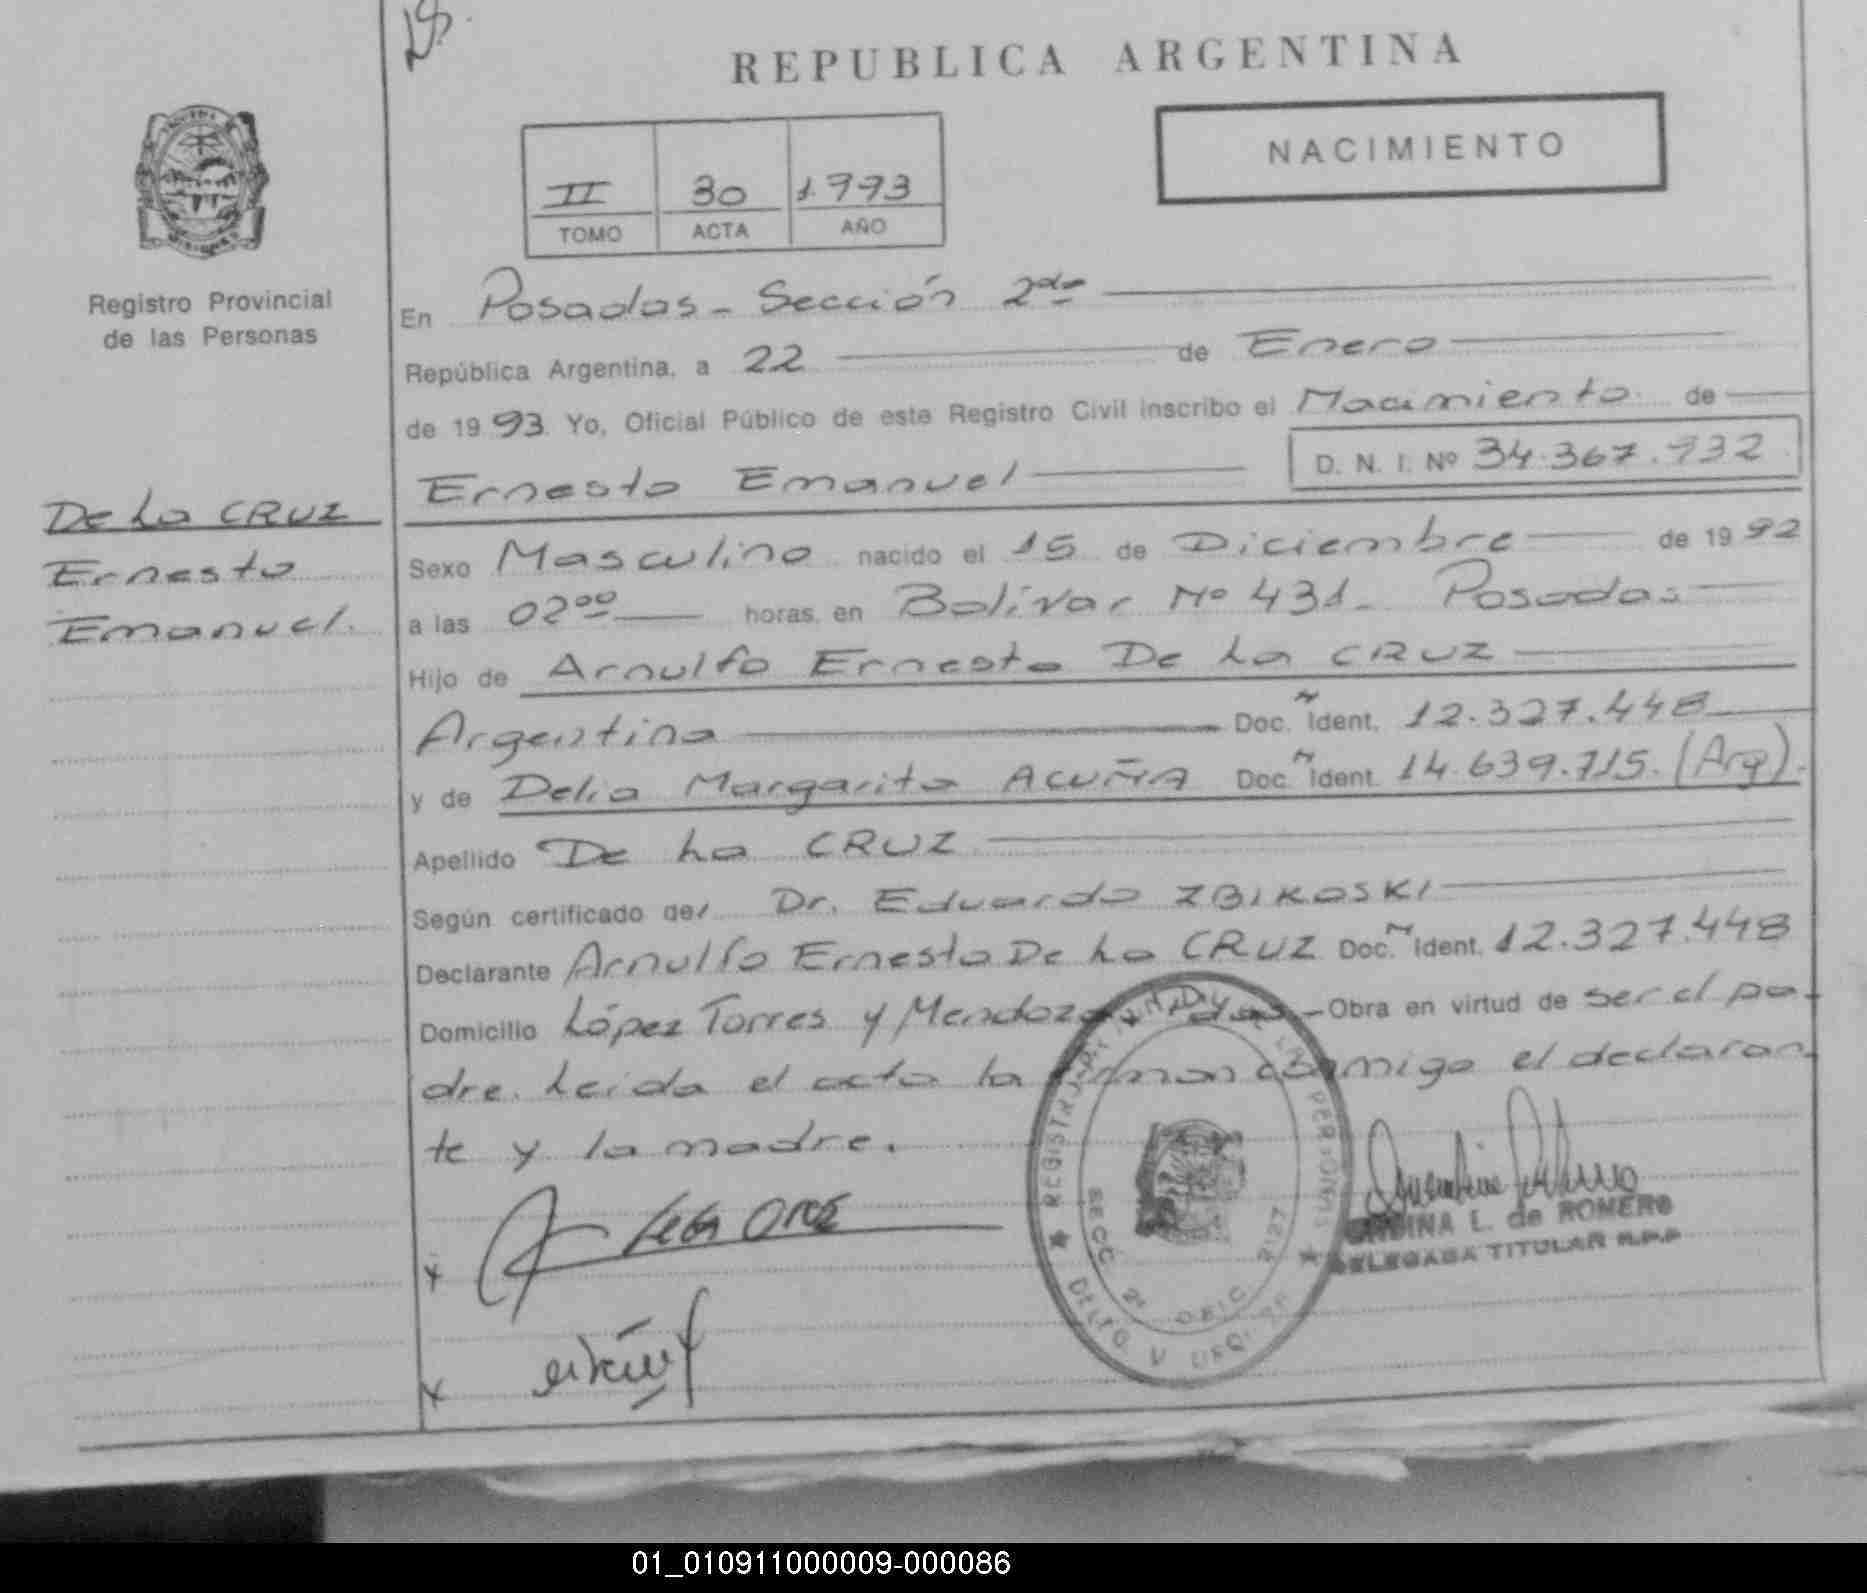 REPUBLICA ARGENTINA
NACIMIENTO
II 30 1993
TOMO ACTA AÑO
Registro Provincial
de las Personas
De La CRUZ
Ernesto
Emanuel.
En Posadas - Sección 2da
República Argentina, a 22 de Enero
de 1993 Yo, Oficial Público de este Registro Civil inscribo el Nacimiento de
D. N. I. Nº 34.367.932
Ernesto Emanuel
Sexo Masculino nacido el 15 de Diciembre de 1992
a las 02 00 horas, en Bolívar Nº 431 - Posadas
Hijo de Arnulfo Ernesto De La CRUZ
Argentina Doc. N Ident. 12.327.448
y de Delia Margarita ACUÑA Doc. N Ident. 14.639.715. (Arg).
Apellido De La CRUZ
Según certificado del Dr. Eduardo ZBIKOSKI
Declarante Arnulfo Ernesto De La CRUZ Doc. N Ident. 12.327.448
Domicilio López Torres y Mendoza - Pdas. - Obra en virtud de ser el pa-
dre. Leida el acta la firman conmigo el declaran-
te y la madre.
SECC 2ª OFIC 2127
L. de ROMERO
DELEGADA TITULAR R.P.P
01_010911000009-000086